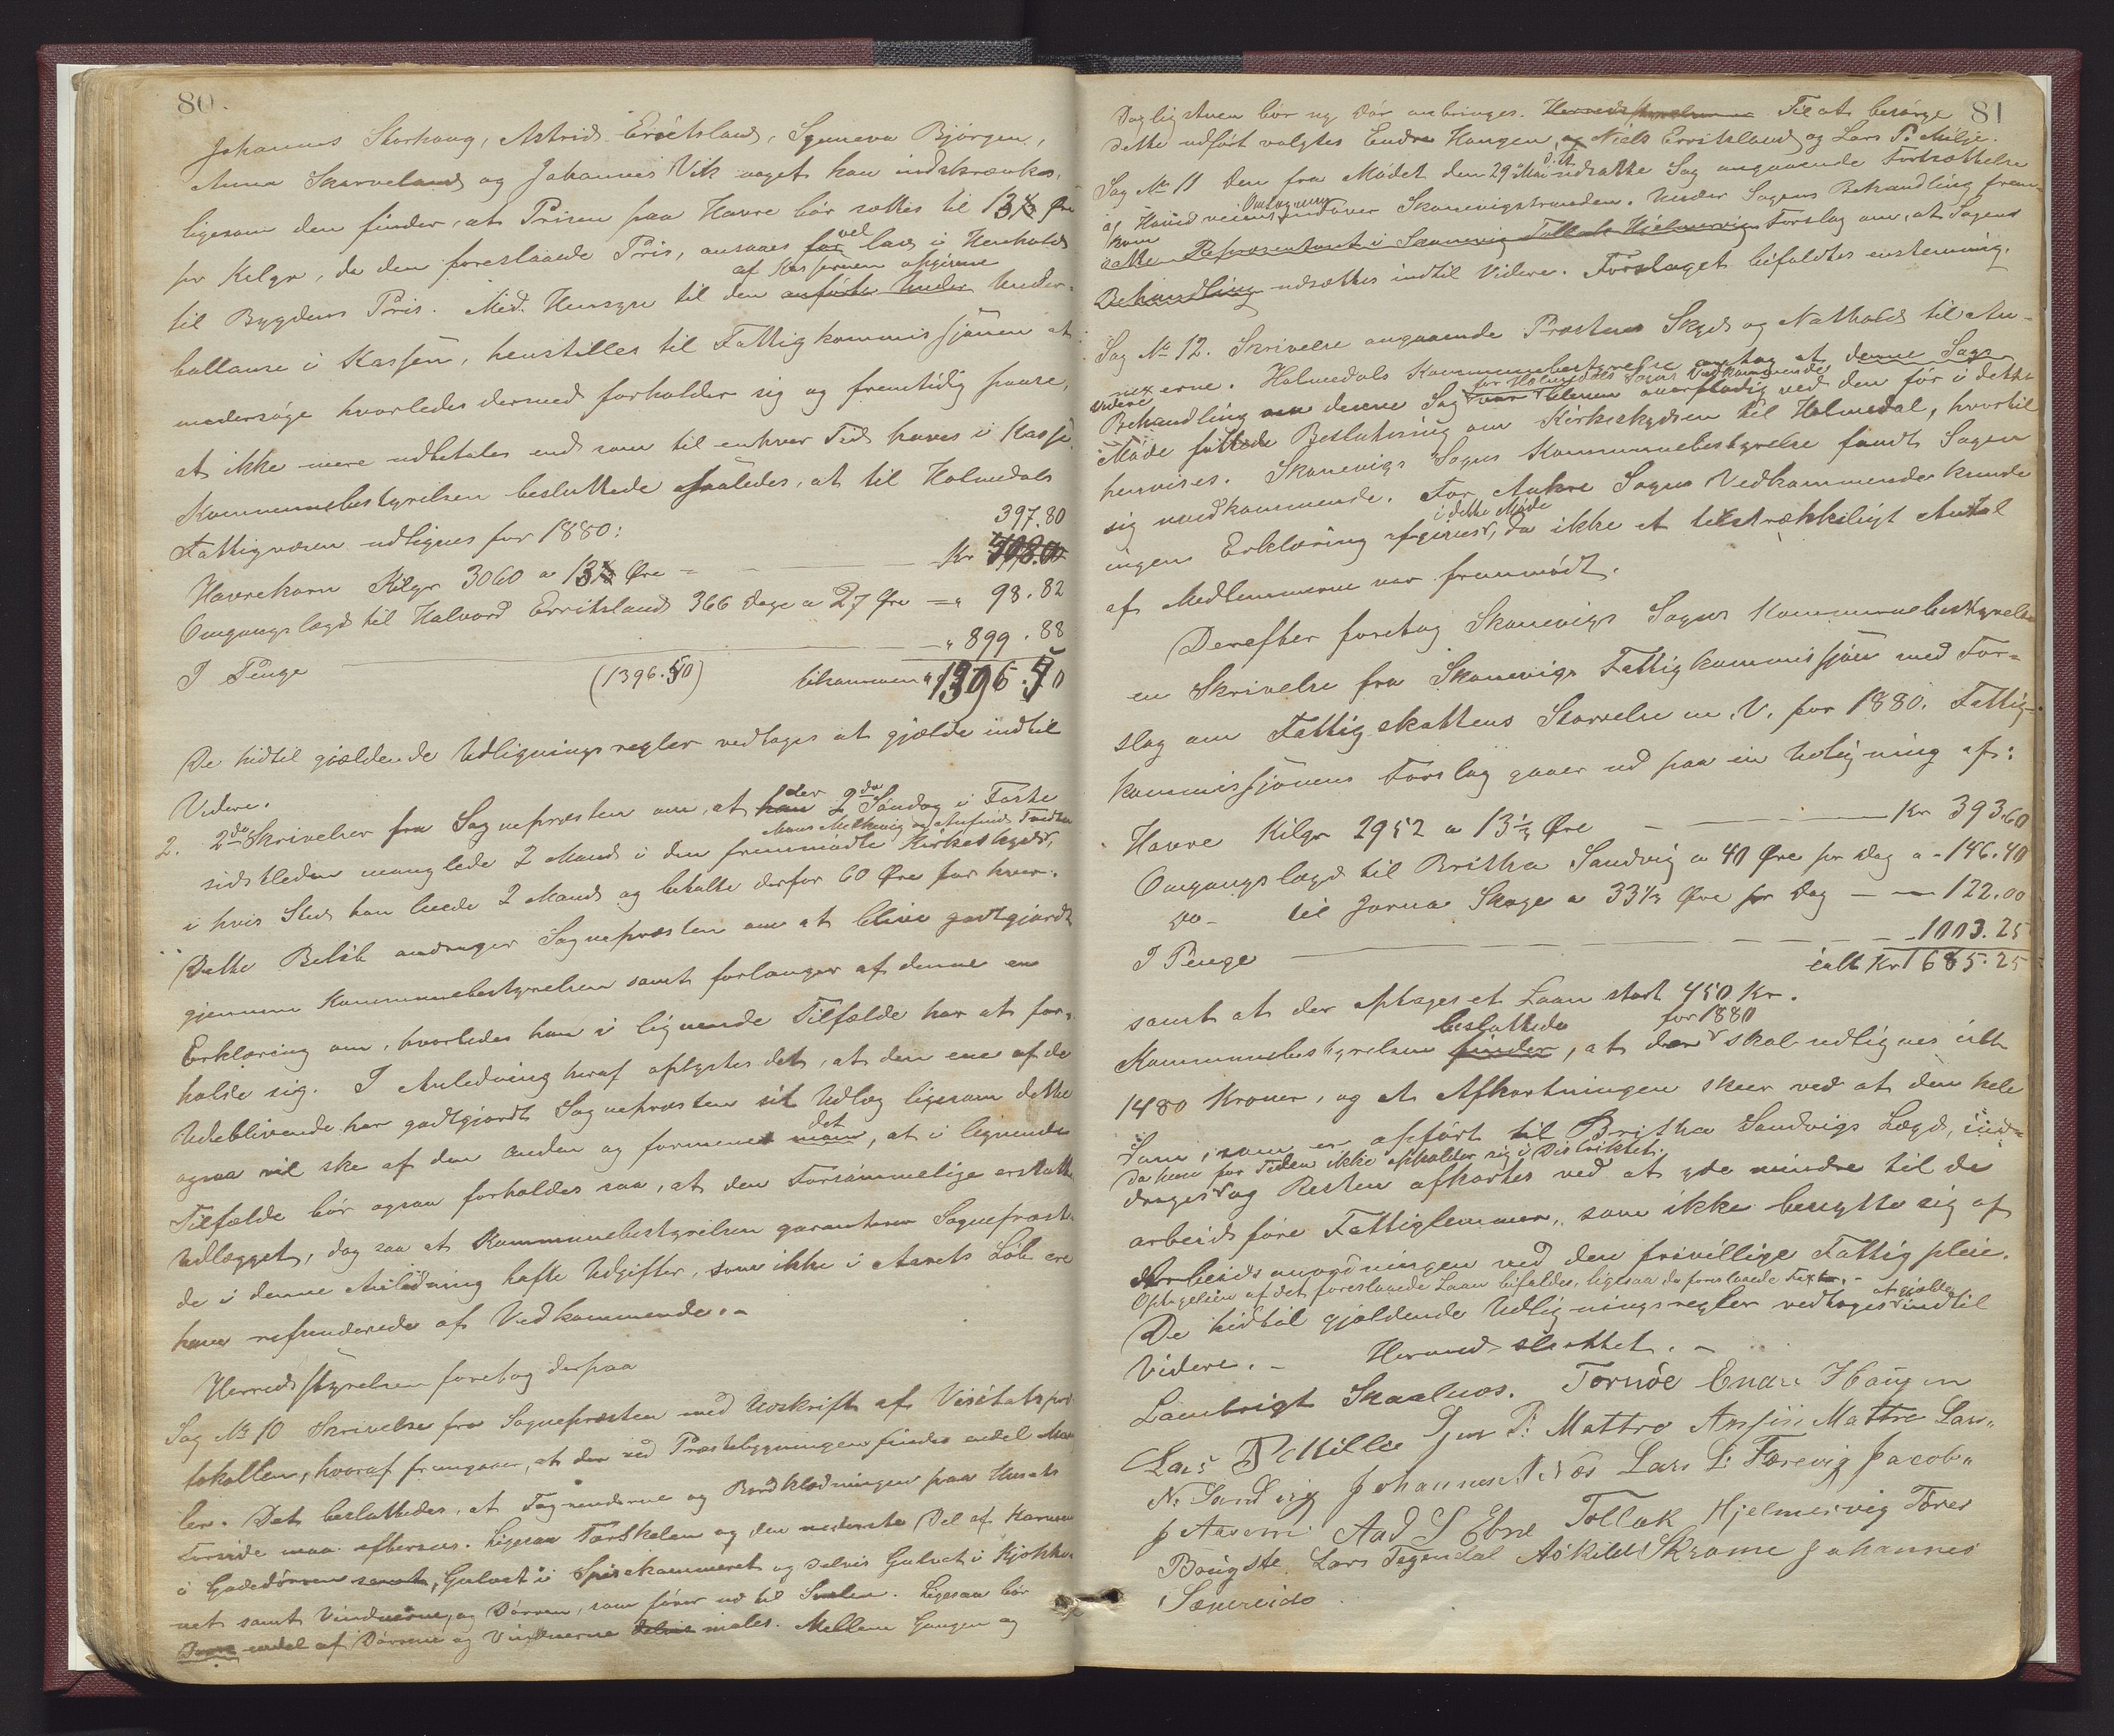 80.
Johannes Storhaug, Astrid Eritsland, Synneva Bjørgen,
Anna Skarveland og Johannes Vik noget kan indskrænkes,
ligesom den finder, at Prisen paa Havre bør sættes til 13 Øre
pr Kilgr, da den foreslaaede Pris, ansaaes for vel lav i Henhold
til Bygdens Pris. Med Hensyn til den af Kasseren opgivne anførte Under Under-
ballanse i Kassen, henstilles til Fattigkommissjonen at
undersøge hvorledes dermed forholder sig og fremtidig passe,
at ikke mere udbetales end som til enhver Tid haves i Kasse.
Kommunebestyrelsen besluttede saaledes, at til Holmedals
Fattigvæsen udlignes for 1880:
397.80
Havrekorn Kilgr 3060 a 13 Øre = Kr 408.00
Omgangslægd til Halvord Erritsland 366 Dage a 27 Øre = " 98.82
I Penge - " 899.88
(1396.50) tilsammen " 1396.50
De hidtil gjældende Udligningsregler vedtages at gjælde indtil
Videre.
2. 2de Skrivelser fra Sognepræsten om, at han der 2den Søndag i Faste
sidstleden manglede 2 Mand i den fremmødte Kirkeskyds,
i hvis Sted han leiede 2 Mand og betalte derfor 60 Øre for hver.
Dette Beløb andrager Sognepræsten om at blive godtgjordt
gjennem Kommunebestyrelsen samt forlanger af denne en
Erklæring om, hvorledes han i lignende Tilfælde har at for-
holde sig. I Anledning heraf oplystes det, at den ene af de
Udeblivende har godtgjordt Sognepræsten sit Udlæg ligesom dette
ogsaa vil ske af den anden og formenes det man, at i lignende
Tilfælde bør ogsaa forholdes saa, at den Forsømmelige erstatter
Udlægget, dog saa at Kommunebestyrelsen garanterer Sognepræsten
de i denne Anledning hafte Udgifter, som ikke i Aarets Løb ere
han refunderede af Vedkommende.-
Herredsstyrelsen foretog derpaa
Sag No 10 Skrivelse fra Sognepræsten med Udskrift af Visitatspro-
tokollen, hvoraf fremgaaer, at der ved Præstebygningen findes endel Mang-
ler. Det besluttedes, at Tagrenderne og Bordklædningen paa Husets
Forside maa efterses. Ligesaa Tørskelen og den nederste Del af Karmen
i Gadedørren samt, Gulvet i Spisekammeret og delvis Gulvet i Kjøkke-
net samt Vinduerne, og Dørren, som fører ud til Svalen. Ligesaa bør
endel af Dørrene og Vinduerne delvis males. Mellem Gangen og
81
Dagligstuen bør ny Dør anbringes. Herredsstyrelsen Til at besørge
dette udført valgtes Endre Haugen og Niels Erritsland og Lars P. Milje.
Sag No 11 Den fra Mødet den 29 Mai d. A. udsatte Sag angaaende Fortsættelse
af Hovedveiens Omlægning indover Skonevigstranden. Under Sagens Behandling frem-
kom
satte Repræsentant i Skonevig Tollak Hjelmervig Forslag om, at Sagens
Behandling udsættes indtil Videre. Forslaget bifaldtes enstemmig.
Sag No 12. Skrivelse angaaende Præstens Skyds og Nathold til An-
nexerne. Holmedals Kommunebestyrelse antog at denne Sags
videre for Holmedals Sogns Vedkommende
Behandling om denne Sag var bleven overflødig ved den før i dette
Møde fattede Beslutning om Kirkeskydsen til Holmedal, hvortil
henvises. Skonevigs Sogns Kommunebestyrelse fandt Sagen
sig uvedkommende. For Aakre Sogns Vedkommende kunde
ingen Erklæring afgives i dette Møde, da ikke et tilstrækkeligt Antal
af Medlemmerne var fremmødt.
Derefter foretog Skonevigs Sogns Kommunebestyrelse
en Skrivelse fra Skonevigs Fattigkommissjon med For-
slag om Fattigskattens Størrelse m. V. for 1880. Fattig-
kommissjonens Forslag gaaer ud paa en Udligning af:
Havre Kilgr 2952 a 13⅓ Øre - Kr 393.60
Omgangslægd til Britha Sandvig a 40 Øre pr Dag a - 146.40
do- til Jorna Skage a 33⅓ Øre pr Dag - - 122.00
I Penge - 1003.25
ialt Kr 1685.25
samt at der optages et Laan stort 450 Kr.
Kommunebestyrelsen besluttede finder, at der for 1880 skal udlignes ialt
1480 Kroner, og at Afkortningen skeer ved at den hele
Sum, som er opført til Britha Sandvigs Lægd, ind-
da hun for Tiden ikke opholder sig i Distriktet.
drages og Resten afkortes ved at yde mindre til de
arbeidsføre Fattiglemmer, som ikke benytte sig af
Arbeidsanordningen ved den frivillige Fattigpleie.
Optagelsen af det foreslaaede Laan bifaldes, ligesaa de foreslaaede Taxter.-
De hidtil gjældende Udligningsregler vedtages at gjælde indtil
Videre.- Hermed sluttet.-
Lambrigt Skaalnæs. Tornöe Endre Haugen
Lars P Millie Jon P: Mattre Ansjön Mattre Lars
N. Sandvig Johannes Næs Lars L: Færevig Jacob
J Aasem Aad S Ebne Tollak Hjelmervig Tores
Bougste Lars Tegendal Askild Skrome Johannes
Sæpereide